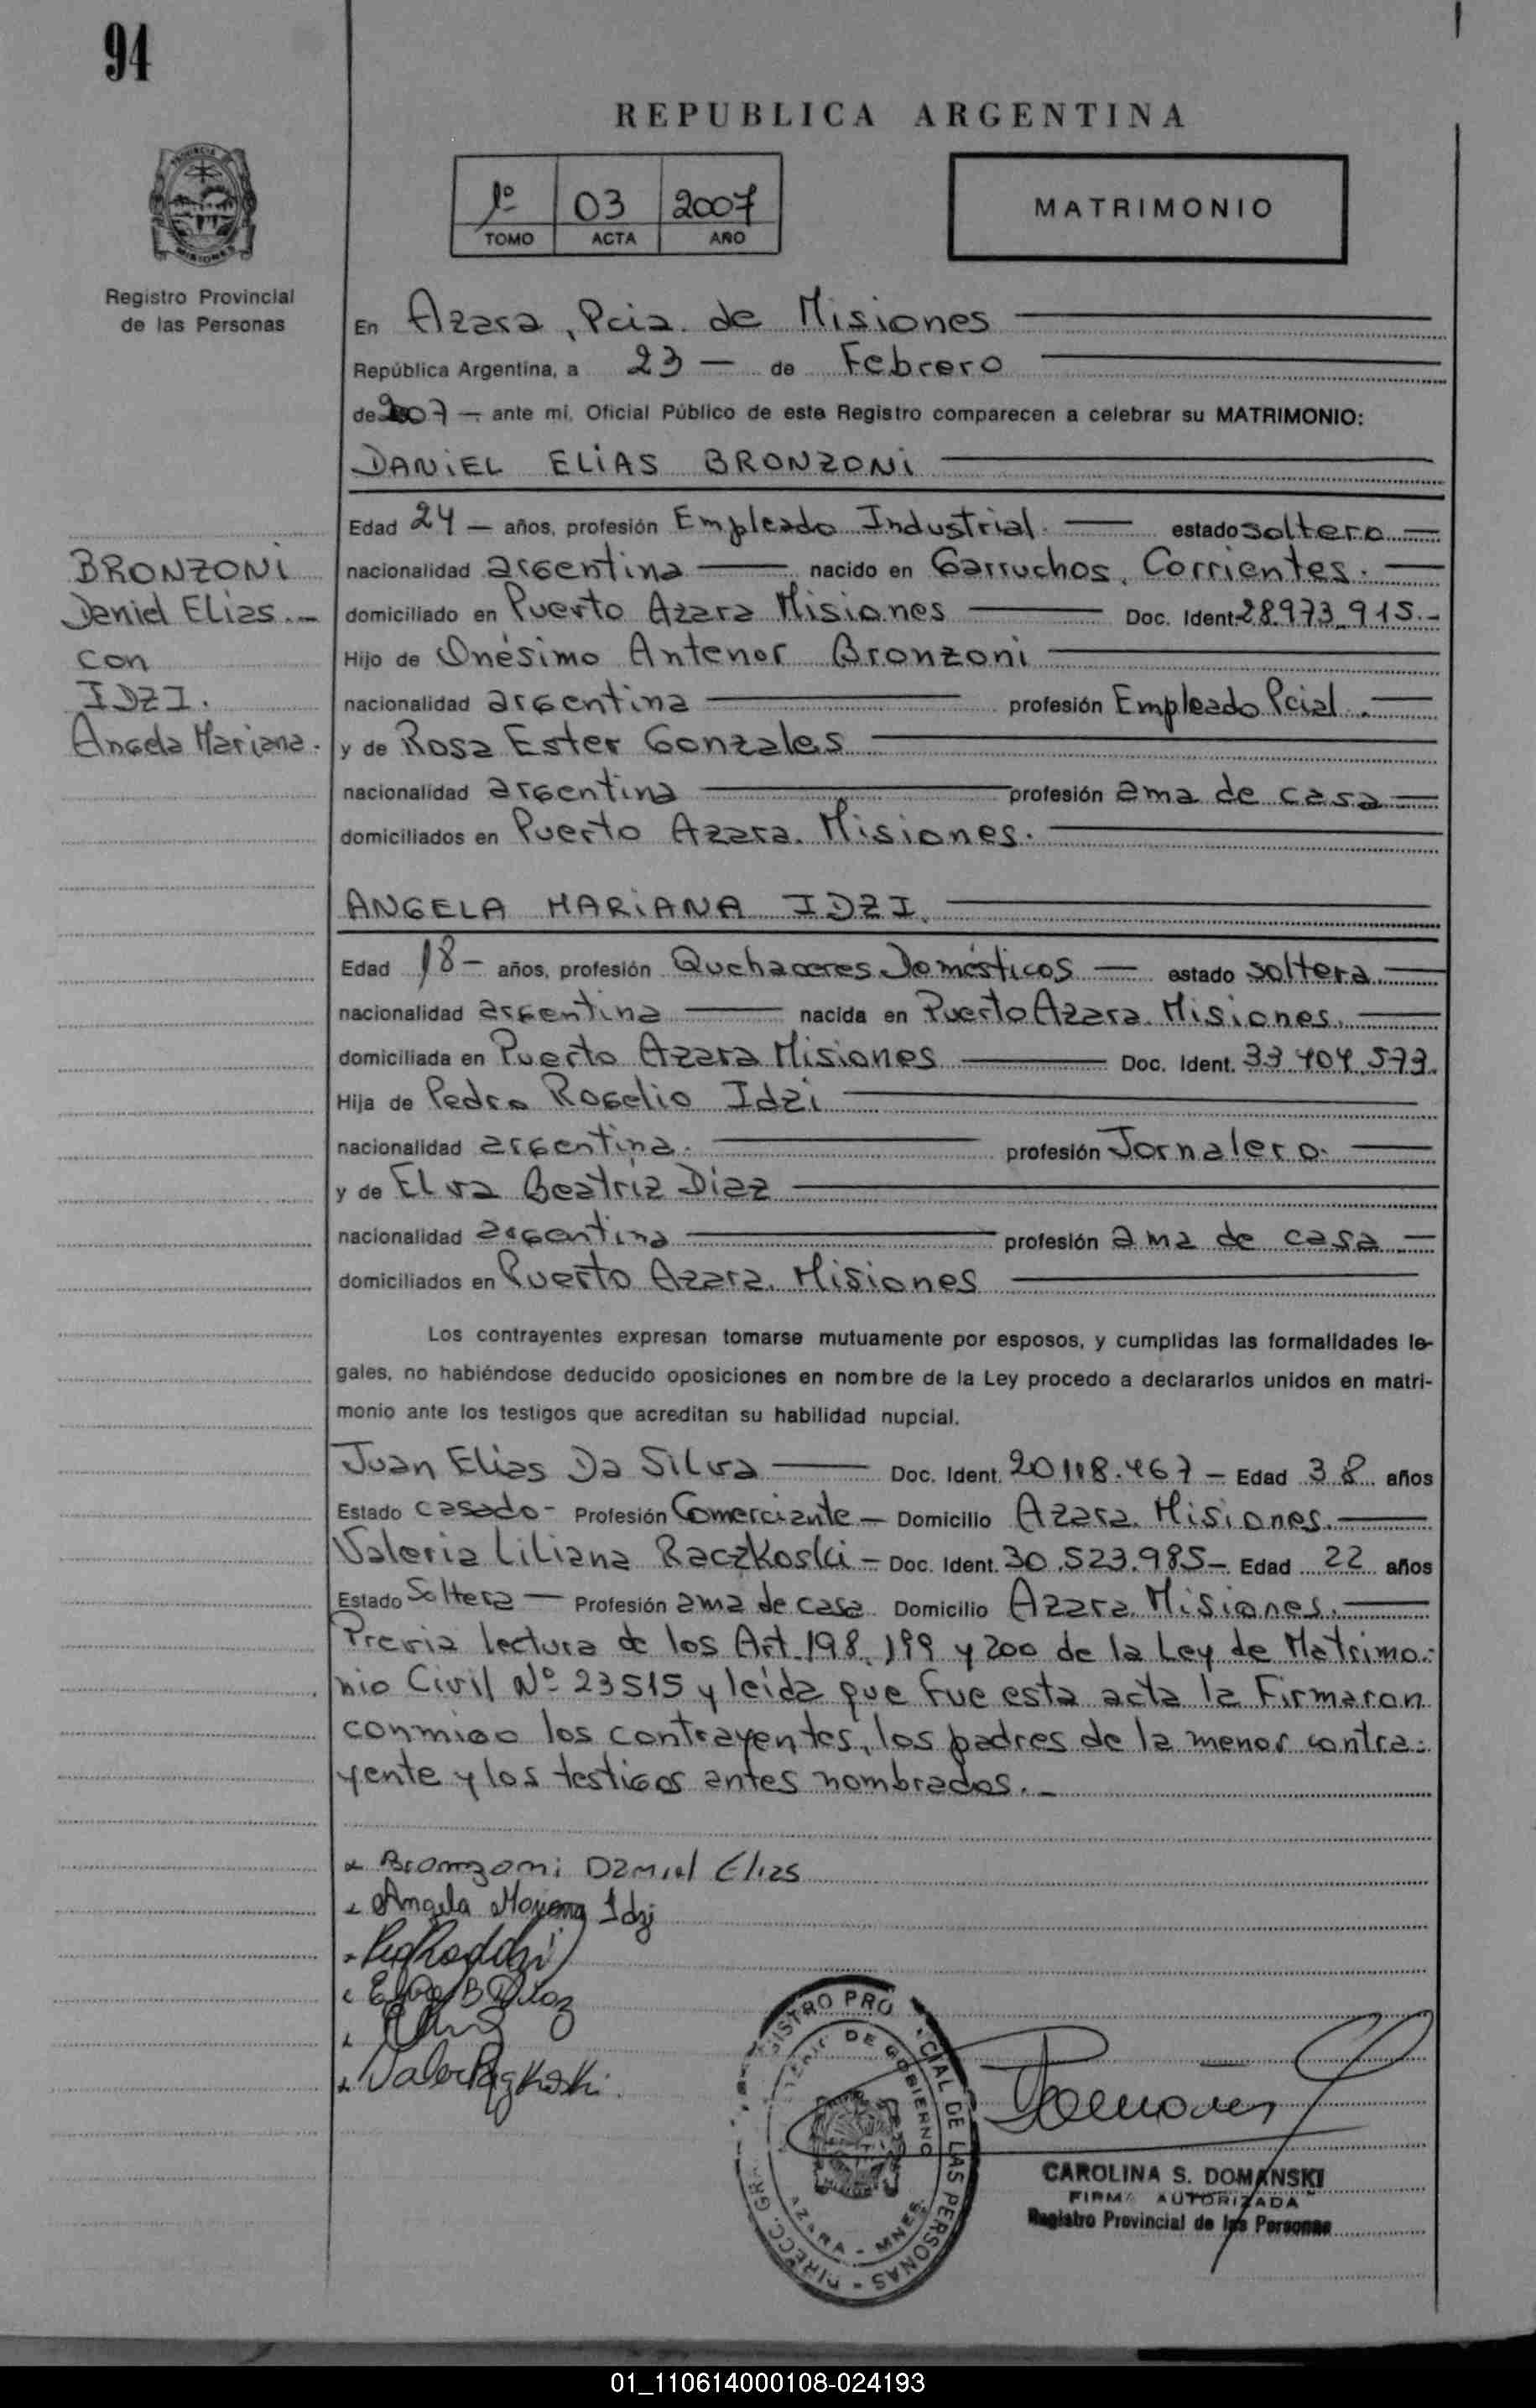 94
REPUBLICA ARGENTINA
1º 03 2007
TOMO ACTA AÑO
MATRIMONIO
PROVINCIA DE
MISIONES
Registro Provincial
de las Personas
En Azara, Pcia. de Misiones
República Argentina, a 23 — de Febrero
de 2007 — ante mi, Oficial Público de este Registro comparecen a celebrar su MATRIMONIO:
DANIEL ELIAS BRONZONI
Edad 24 — años, profesión Empleado Industrial. — estado soltero —
BRONZONI
Daniel Elias.—
con
IDZI.
Angela Mariana.
nacionalidad argentina — nacido en Garruchos, Corrientes. —
domiciliado en Puerto Azara Misiones — Doc. Ident. 28.973.915.-
Hijo de Onésimo Antenor Bronzoni
nacionalidad argentina — profesión Empleado Pcial. —
y de Rosa Ester Gonzales
nacionalidad argentina — profesión ama de casa —
domiciliados en Puerto Azara. Misiones.
ANGELA MARIANA IDZI.
Edad 18 — años, profesión Quehaceres Domésticos — estado soltera —
nacionalidad argentina — nacida en Puerto Azara. Misiones. —
domiciliada en Puerto Azara Misiones — Doc. Ident. 33.404.573.
Hija de Pedro Rogelio Idzi
nacionalidad argentina. — profesión Jornalero. —
y de Elva Beatriz Diaz
nacionalidad argentina — profesión ama de casa —
domiciliados en Puerto Azara. Misiones
Los contrayentes expresan tomarse mutuamente por esposos, y cumplidas las formalidades le-
gales, no habiéndose deducido oposiciones en nombre de la Ley procedo a declararlos unidos en matri-
monio ante los testigos que acreditan su habilidad nupcial.
Juan Elias Da Silva — Doc. Ident. 20118.467 — Edad 38 años
Estado casado - Profesión Comerciante — Domicilio Azara. Misiones. —
Valeria Liliana Raczkoski — Doc. Ident. 30.523.985 — Edad 22 años
Estado Soltera — Profesión ama de casa Domicilio Azara. Misiones. —
Previa lectura de los Art. 198, 199 y 200 de la Ley de Matrimo-
nio Civil Nº 23515 y leída que fue esta acta la Firmaron
conmigo los contrayentes, los padres de la menor contra-
yente y los testigos antes nombrados.—
Bronzoni Daniel Elias
Angela Mariana Idzi
Elva B Diaz
REGISTRO PROVINCIAL DE LAS PERSONAS - DIRECC. GRAL.
DE GOBIERNO
AZARA - MNES.
CAROLINA S. DOMANSKI
FIRMA AUTORIZADA
Registro Provincial de las Personas
01_110614000108-024193